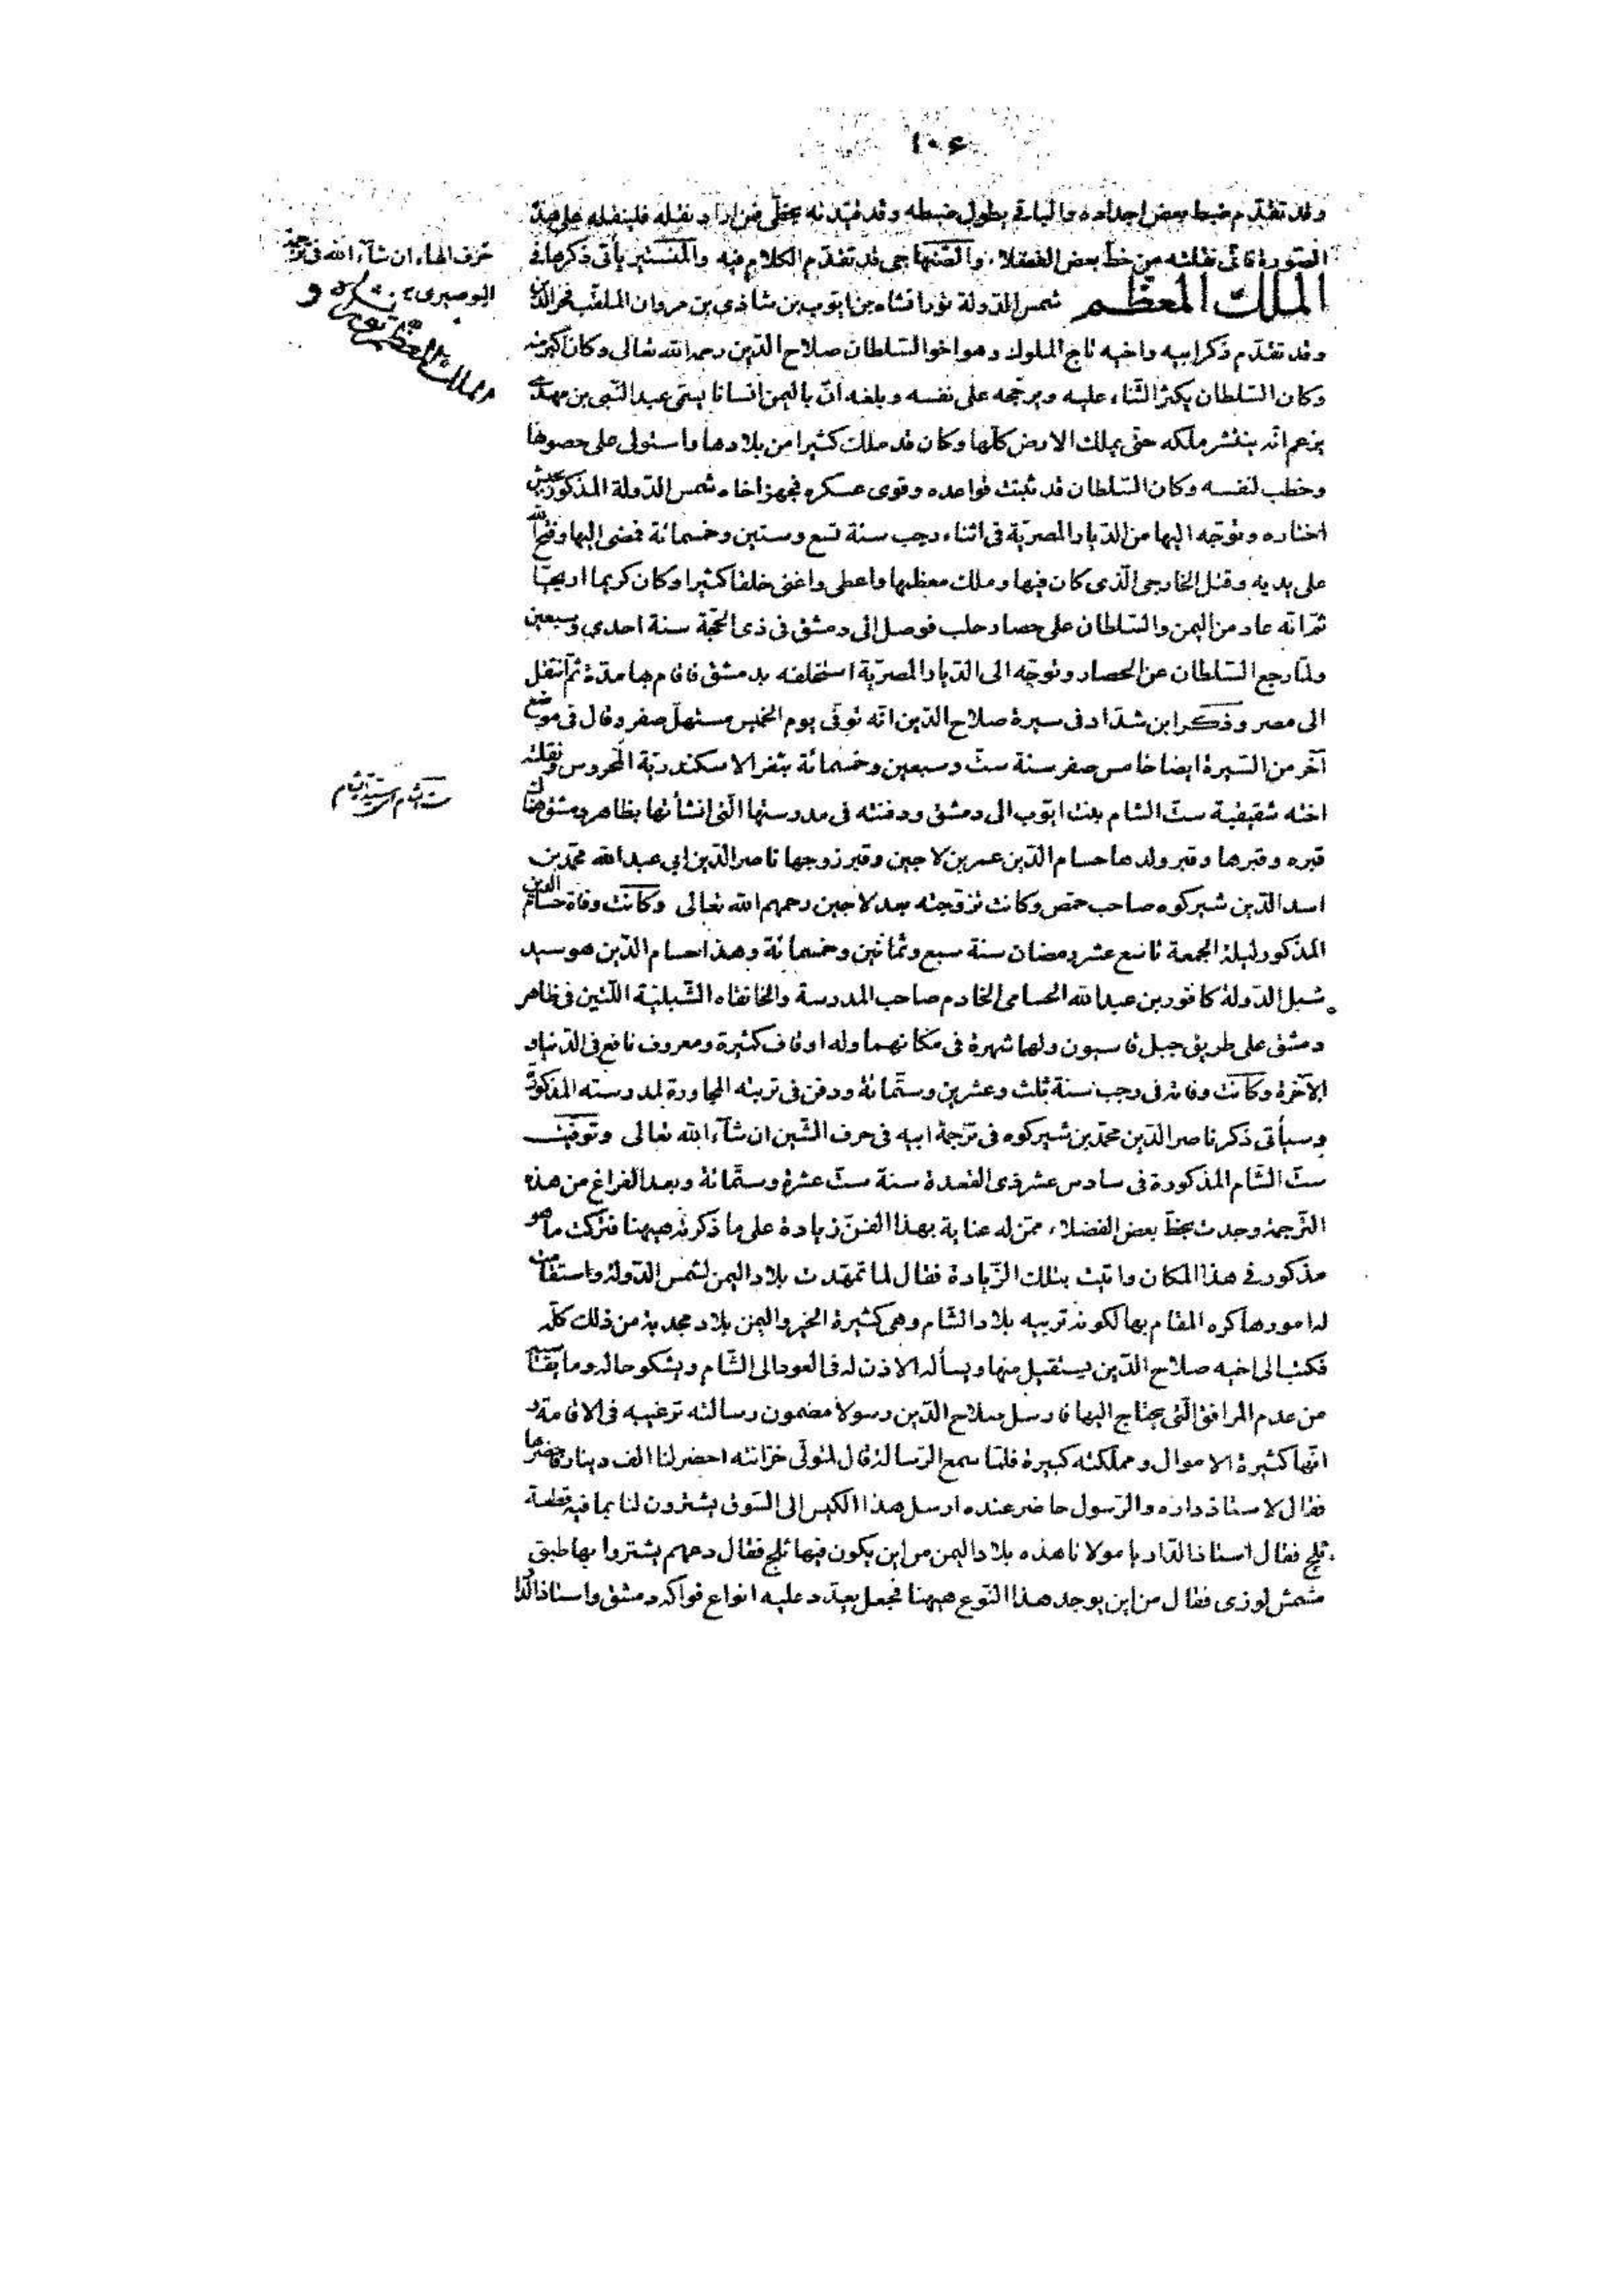 ١٠۶
وقد تقدّم ضبط بعض اجداده والباقى يطول ضبطه وقد قيّدته بخطّى فمن اراد نقله فلينقله على هذه
الصّورة فانّى نقلته من خطّ بعض الفضلاء والصّنهاجى قد تقدّم الكلام فيه والمنستير يأتى ذكرها فى
حرف الهاء ان شآء الله فى ترجمة
البوصيرى
الملك المعظّم شمس الدّولة تورانشاه بن ايّوب بن شاذى بن مروان الملقّب فخر الدّين
وقد تقدّم ذكر ابيه واخيه تاج الملوك وهو اخو السّلطان صلاح الدّين رحمه الله تعالى وكان اكبر منه
وكان السّلطان يكثر الثّناء عليه ويرجّحه على نفسه وبلغه انّ باليمن انسانا يسمّى عبد النّبى بن مهدى
يزعم انّه ينتشر ملكه حتّى يملك الارض كلّها وكان قد ملك كثيرا من بلادها واستولى على حصونها
وخطب لنفسه وكان السّلطان قد ثبتت قواعده وقوى عسكره فجهز اخاه شمس الدّولة المذكور بجيش
اختاره وتوجّه اليها من الدّيار المصريّة فى اثناء رجب سنة تسع وستين وخمسمائة فمضى اليها وفتح الله
على يديه وقتل الخارجى الّذى كان فيها وملك معظمها واعطى واغنى خلقا كثيرا وكان كريما اريحيّا
ثمّ انّه عاد من اليمن والسّلطان على حصار حلب فوصل الى دمشق فى ذى الحجّة سنة احدى وسبعين
ولمّا رجع السّلطان عن الحصار وتوجّه الى الدّيار المصريّة استخلفه بدمشق فاقام بها مدّة ثمّ انتقل
الى مصر وذكر ابن شدّاد فى سيرة صلاح الدّين انّه توفّى يوم الخميس مستهلّ صفر وقال فى موضع
آخر من السّيرة ايضا خامس صفر سنة ستّ وسبعين وخمسمائة بثغر الاسكندريّة المحروس ونقلته
اخته شقيقة ستّ الشام بنت ايّوب الى دمشق ودفنته فى مدرستها الّتى انشأتها بظاهر دمشق فهناك
قبره وقبرها وقبر ولدها حسام الدّين عمر بن لاجين وقبر زوجها ناصر الدّين ابي عبد الله محمّد بن
اسد الدّين شيركوه صاحب حمّص وكانت تزوّجته بعد لاجين رحمهم الله تعالى وكانت وفاة حسام الدين
المذكور ليلة الجمعة تاسع عشر رمضان سنة سبع وثمانين وخمسمائة وهذا حسام الدّين هو سيد
شبل الدّولة كافور بن عبد الله الحسامى الخادم صاحب المدرسة والخانقاه الشّبليّة اللّتين فى ظاهر
دمشق على طريق جبل قاسيون ولها شهرة فى مكانهما وله اوقاف كثيرة ومعروف نافع فى الدّنيا و
الآخرة وكانت وفاته فى رجب سنة ثلث وعشرين وستّمائة ودفن فى تربته المجاورة لمدرسته المذكورة
وسيأتى ذكر ناصر الدّين محمّد بن شيركوه فى ترجمة ابيه فى حرف الشّين ان شآء الله تعالى وتوفّيت
ستّ الشّام المذكورة فى سادس عشر ذى القعدة سنة ستّ عشرة وستّمائة وبعد الفراغ من هذه
التّرجمة وجدت بخطّ بعض الفضلاء ممّن له عناية بهذا الفنّ زيادة على ما ذكرته هيهنا فتركت ما هو
مذكور فى هذا المكان واتيت بتلك الزّيادة فقال لما تمهّدت بلاد اليمن لشمس الدّولة واستقامت
له امورها كره المقام بها لكونه تربيه بلاد الشّام وهى كثيرة الخير واليمن بلاد مجدبة من ذلك كلّه
فكتب الى اخيه صلاح الدّين يستقيل منها ويسأله الاذن له فى العود الى الشّام ويشكو حاله وما يقاسيه
من عدم المرافق الّتى يحتاج اليها فارسل صلاح الدّين رسولا مضمون رسالته ترغيبه فى الاقامة و
انّها كثيرة الاموال ومملكته كبيرة فلمّا سمع الرّسالة قال لمتولّى خزانته احضر لنا الف دينار فاحضرها
فقال لاستاذ داره والرّسول حاضر عنده ارسل هذا الكيس الى السّوق يشترون لنا بما فيه قطعة
ثلج فقال استاذ الدّار يا مولانا هذه بلاد اليمن من اين يكون فيها ثلج فقال دعهم يشتروا بها طبق
مشمش لوزى فقال من اين يوجد هذا النّوع هيهنا فجعل يعدّد عليه انواع فواكه دمشق واستاذ الدّار